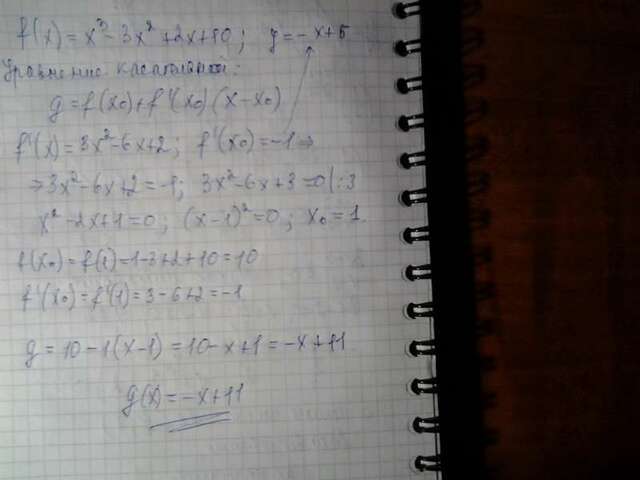 f(x)=x³-3x²+2x+10; y=-x+5
Уравнение касательной:
y=f(x₀)+f'(x₀)(x-x₀)
f'(x)=3x²-6x+2; f'(x₀)=-1⇒
⇒3x²-6x+2=-1; 3x²-6x+3=0|:3
x²-2x+1=0; (x-1)²=0; x₀=1.
f(x₀)=f(1)=1-3+2+10=10
f'(x₀)=f'(1)=3-6+2=-1
y=10-1(x-1)=10-x+1=-x+11
y(x)=-x+11